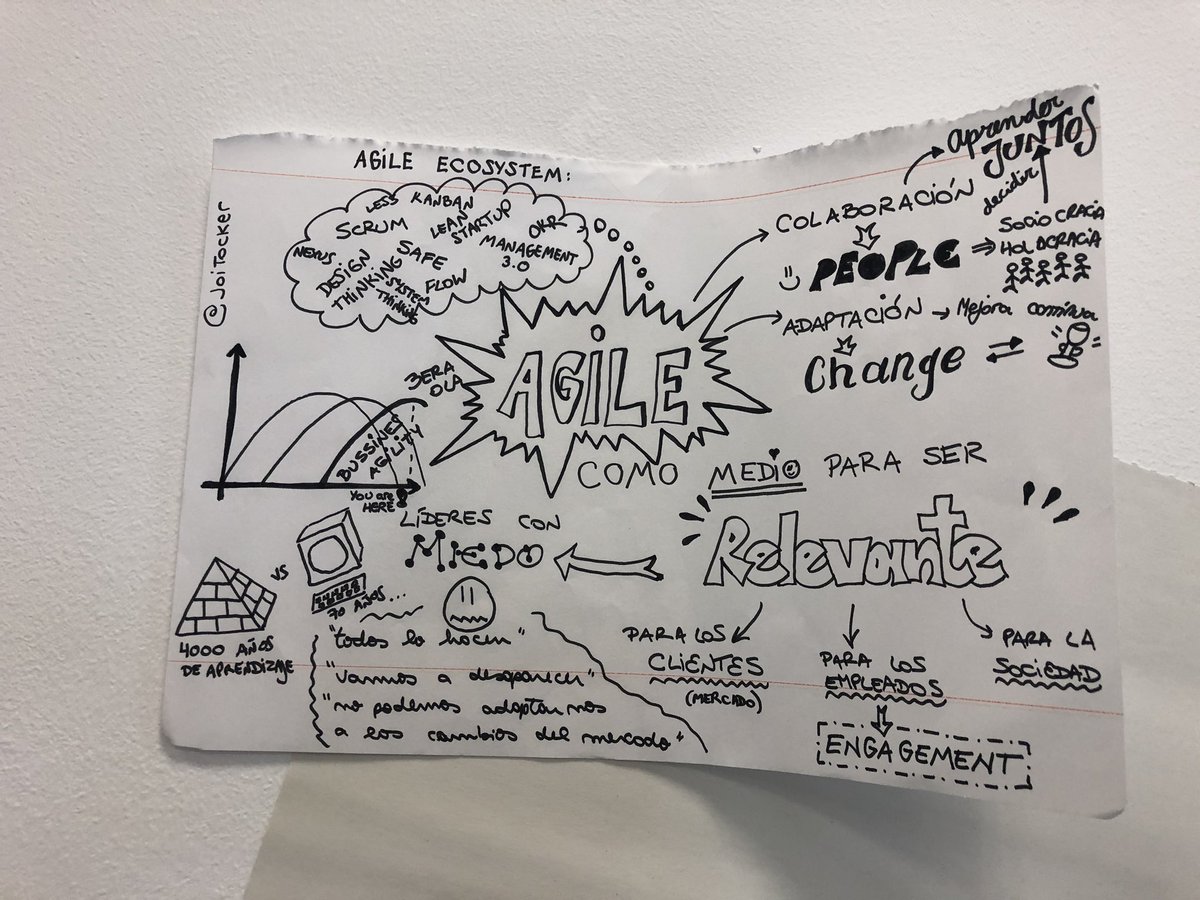 @JoiTocker
AGILE ECOSYSTEM:
LESS KANBAN
SCRUM LEAN STARTUP OKR
NEXUS DESIGN THINKING SAFE MANAGEMENT 3.0
SYSTEM THINKING FLOW
AGILE
COMO MEDIO PARA SER
Relevante
COLABORACIÓN
aprender
decidir
JUNTOS
PEOPLE
SOCIOCRACIA
HOLOCRACIA
ADAPTACIÓN
Mejora continua
Change
3ERA OLA
BUSSINES
AGILITY
You are
HERE
LÍDERES CON
MIEDO
VS
70 AÑOS...
4000 AÑOS
DE APRENDIZAJE
"todos lo hacen"
"vamos a desaparecer"
"no podemos adaptarnos
a los cambios del mercado"
PARA LOS
CLIENTES
(MERCADO)
PARA LOS
EMPLEADOS
ENGAGEMENT
PARA LA
SOCIEDAD